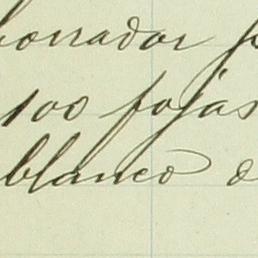 borrador
100 fojas
blanco